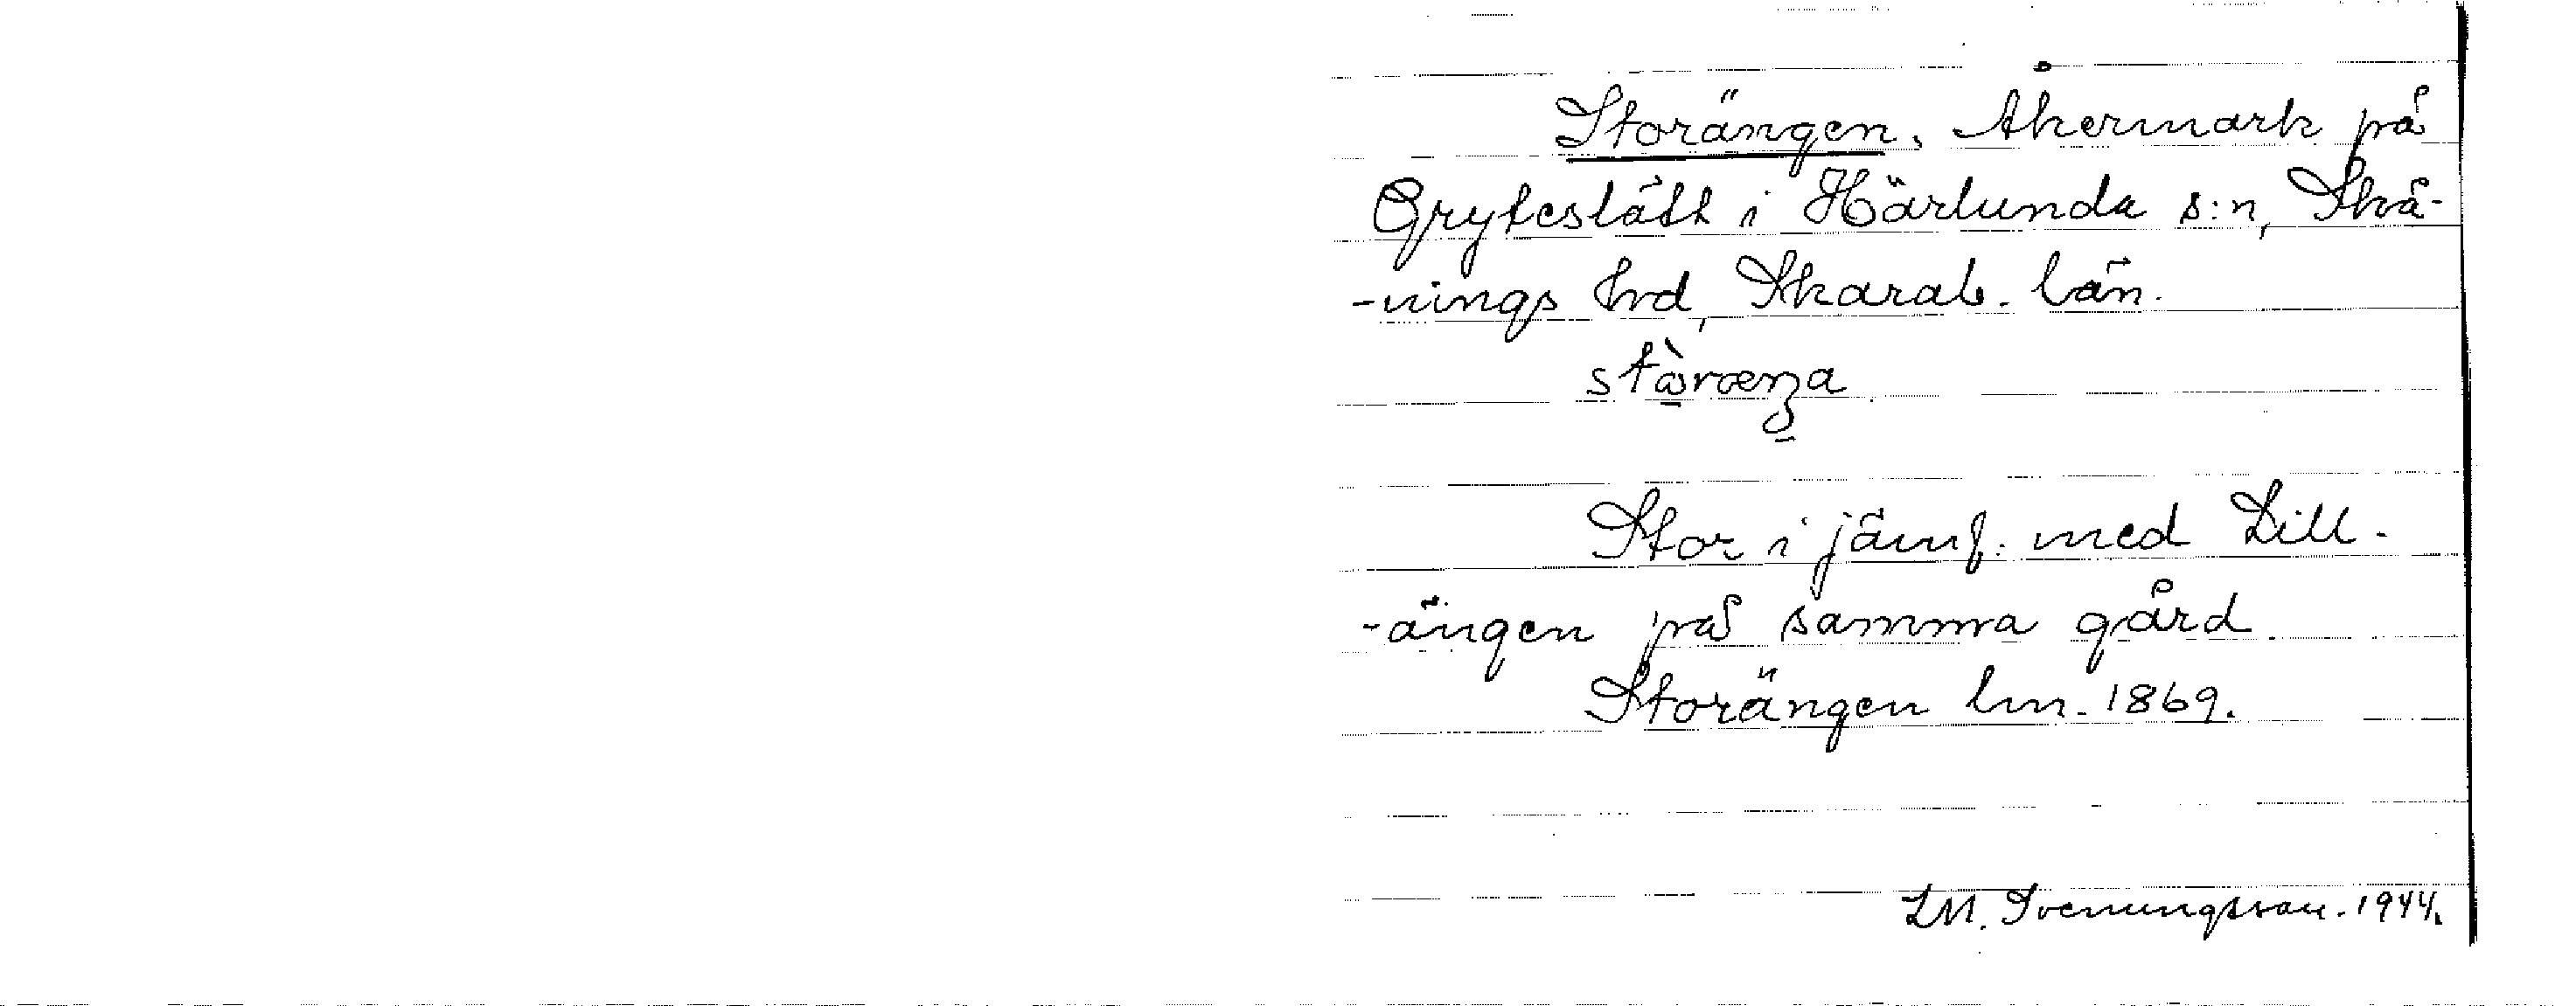 Storängen. Åkermark på
Gryteslätt i Härlunda s:n, Skå-
-nings hrd, Skarab. län.
Stor i jämf. med Lill-
-ängen på samma gård.
Storängen lm. 1869.
LM. Svenungsson. 1944.